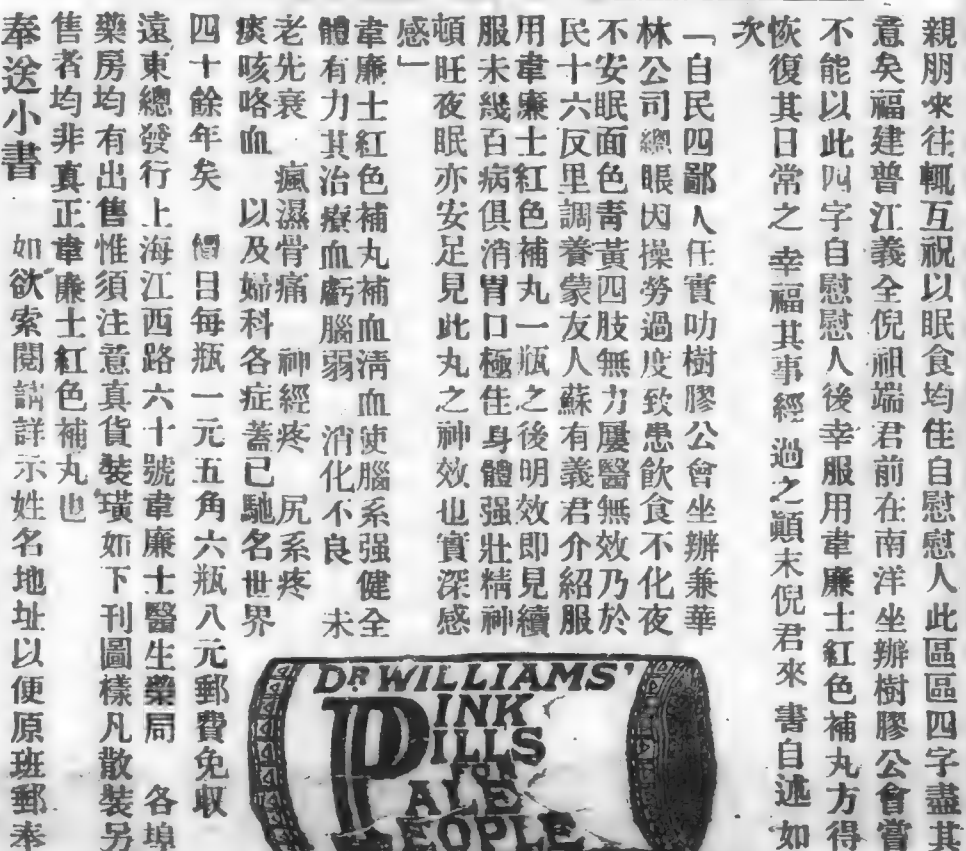 親朋來往輒互祝以眠食均佳自慰慰人此區區四字盡其
意矣福建普江義全倪祖端君前在南洋坐辦樹膠公會嘗
不能以此四字自慰慰人後幸服用韋廉士紅色補丸方得
恢復其日常之 幸福其事經 過之顚末倪君來 書自述如
次
「自民四鄙人任實叻樹膠公會坐辦兼華
林公司總賬因操勞過度致患飲食不化夜
不安眠面色靑黃四肢無力屢醫無效乃於
民十六反里調養蒙友人蘇有義君介紹服
用韋廉士紅色補丸一瓶之後明效即見續
服未幾百病俱消胃口極佳身體强壯精神
頓旺夜眠亦安足見此丸之神效也實深感
感」
韋廉士紅色補丸補血淸血使腦系强健全
體有力其治療血虧腦弱 消化不良 未
老先衰 瘋濕骨痛 神經疼 尻系疼
痰咳咯血 以及婦科各症蓋已馳名世界
四十餘年矣 價目每瓶一元五角六瓶八元郵費免収
遠東總發行上海江西路六十號韋廉士醫生藥局 各埠
藥房均有出售惟須注意真貨裝璜如下刊圖樣凡散裝另
售者均非真正韋廉士紅色補丸也
奉送小書 如欲索閱請詳示姓名地址以便原班郵奉
DR WILLIAMS'
PINK
PILLS
FOR
PALE
PEOPLE